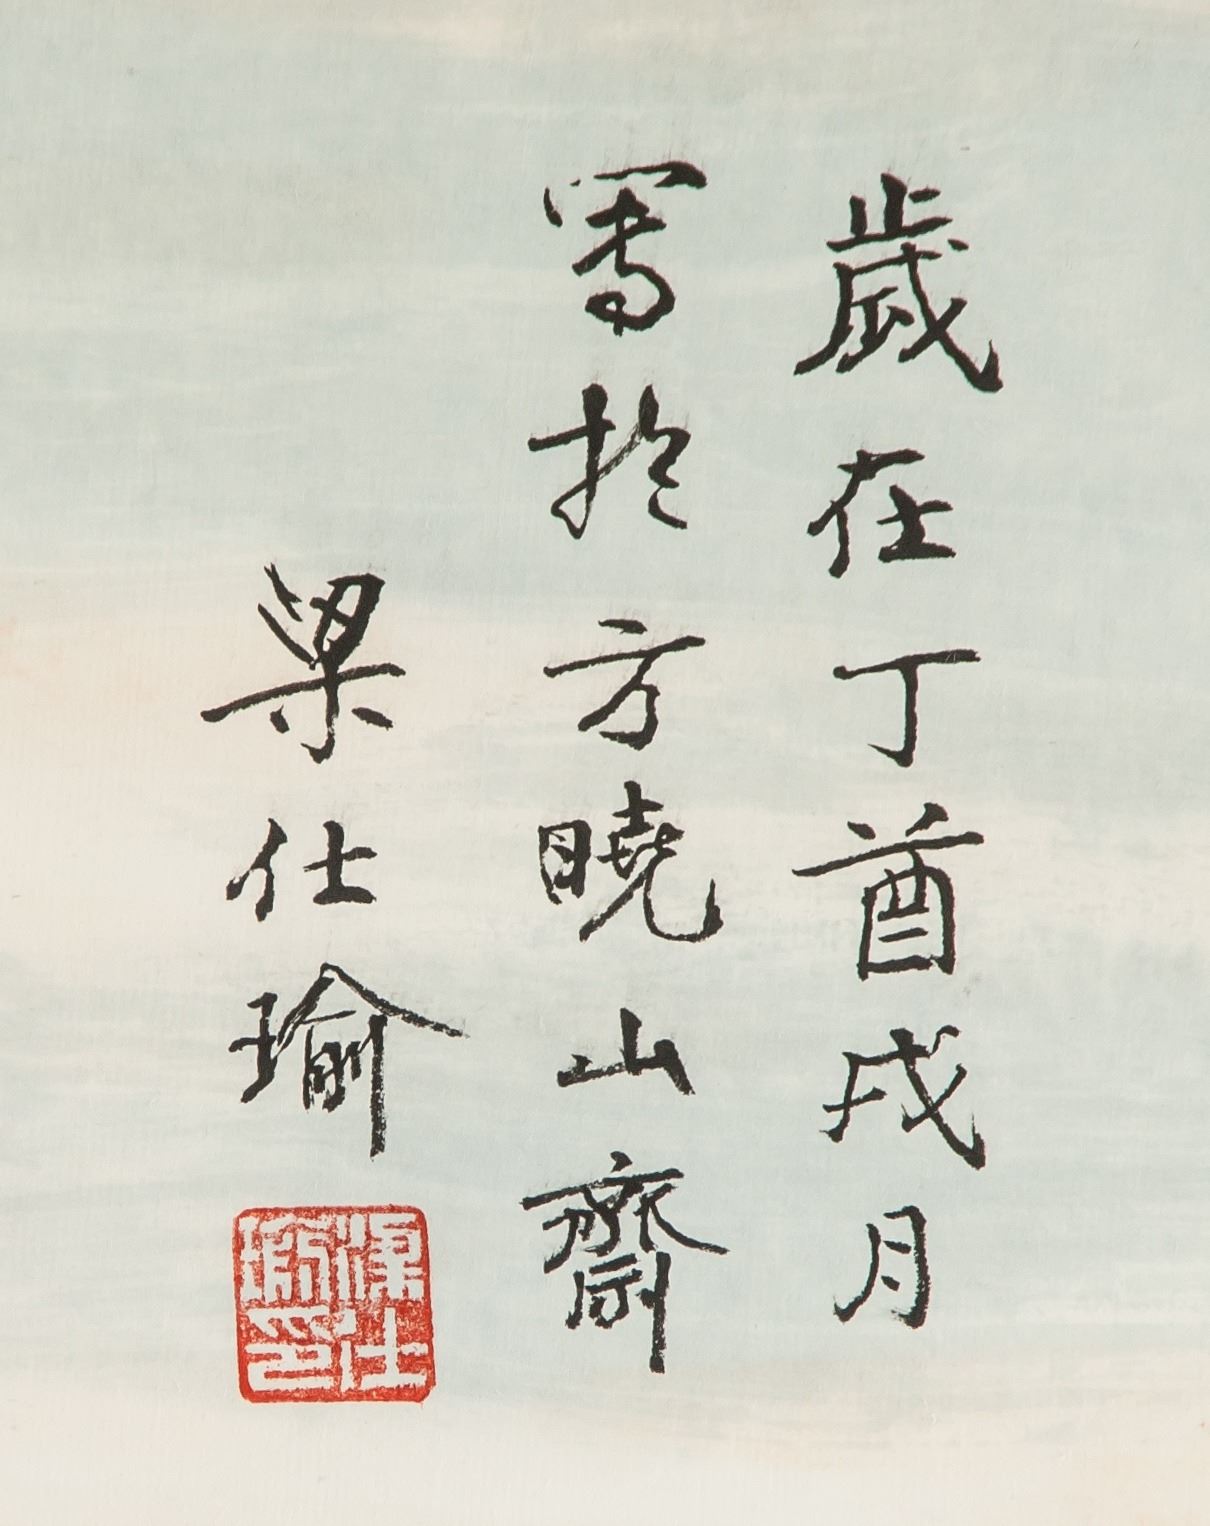 歲在丁酉戌月
寫於方曉山齋
梁仕瑜
梁仕瑜印